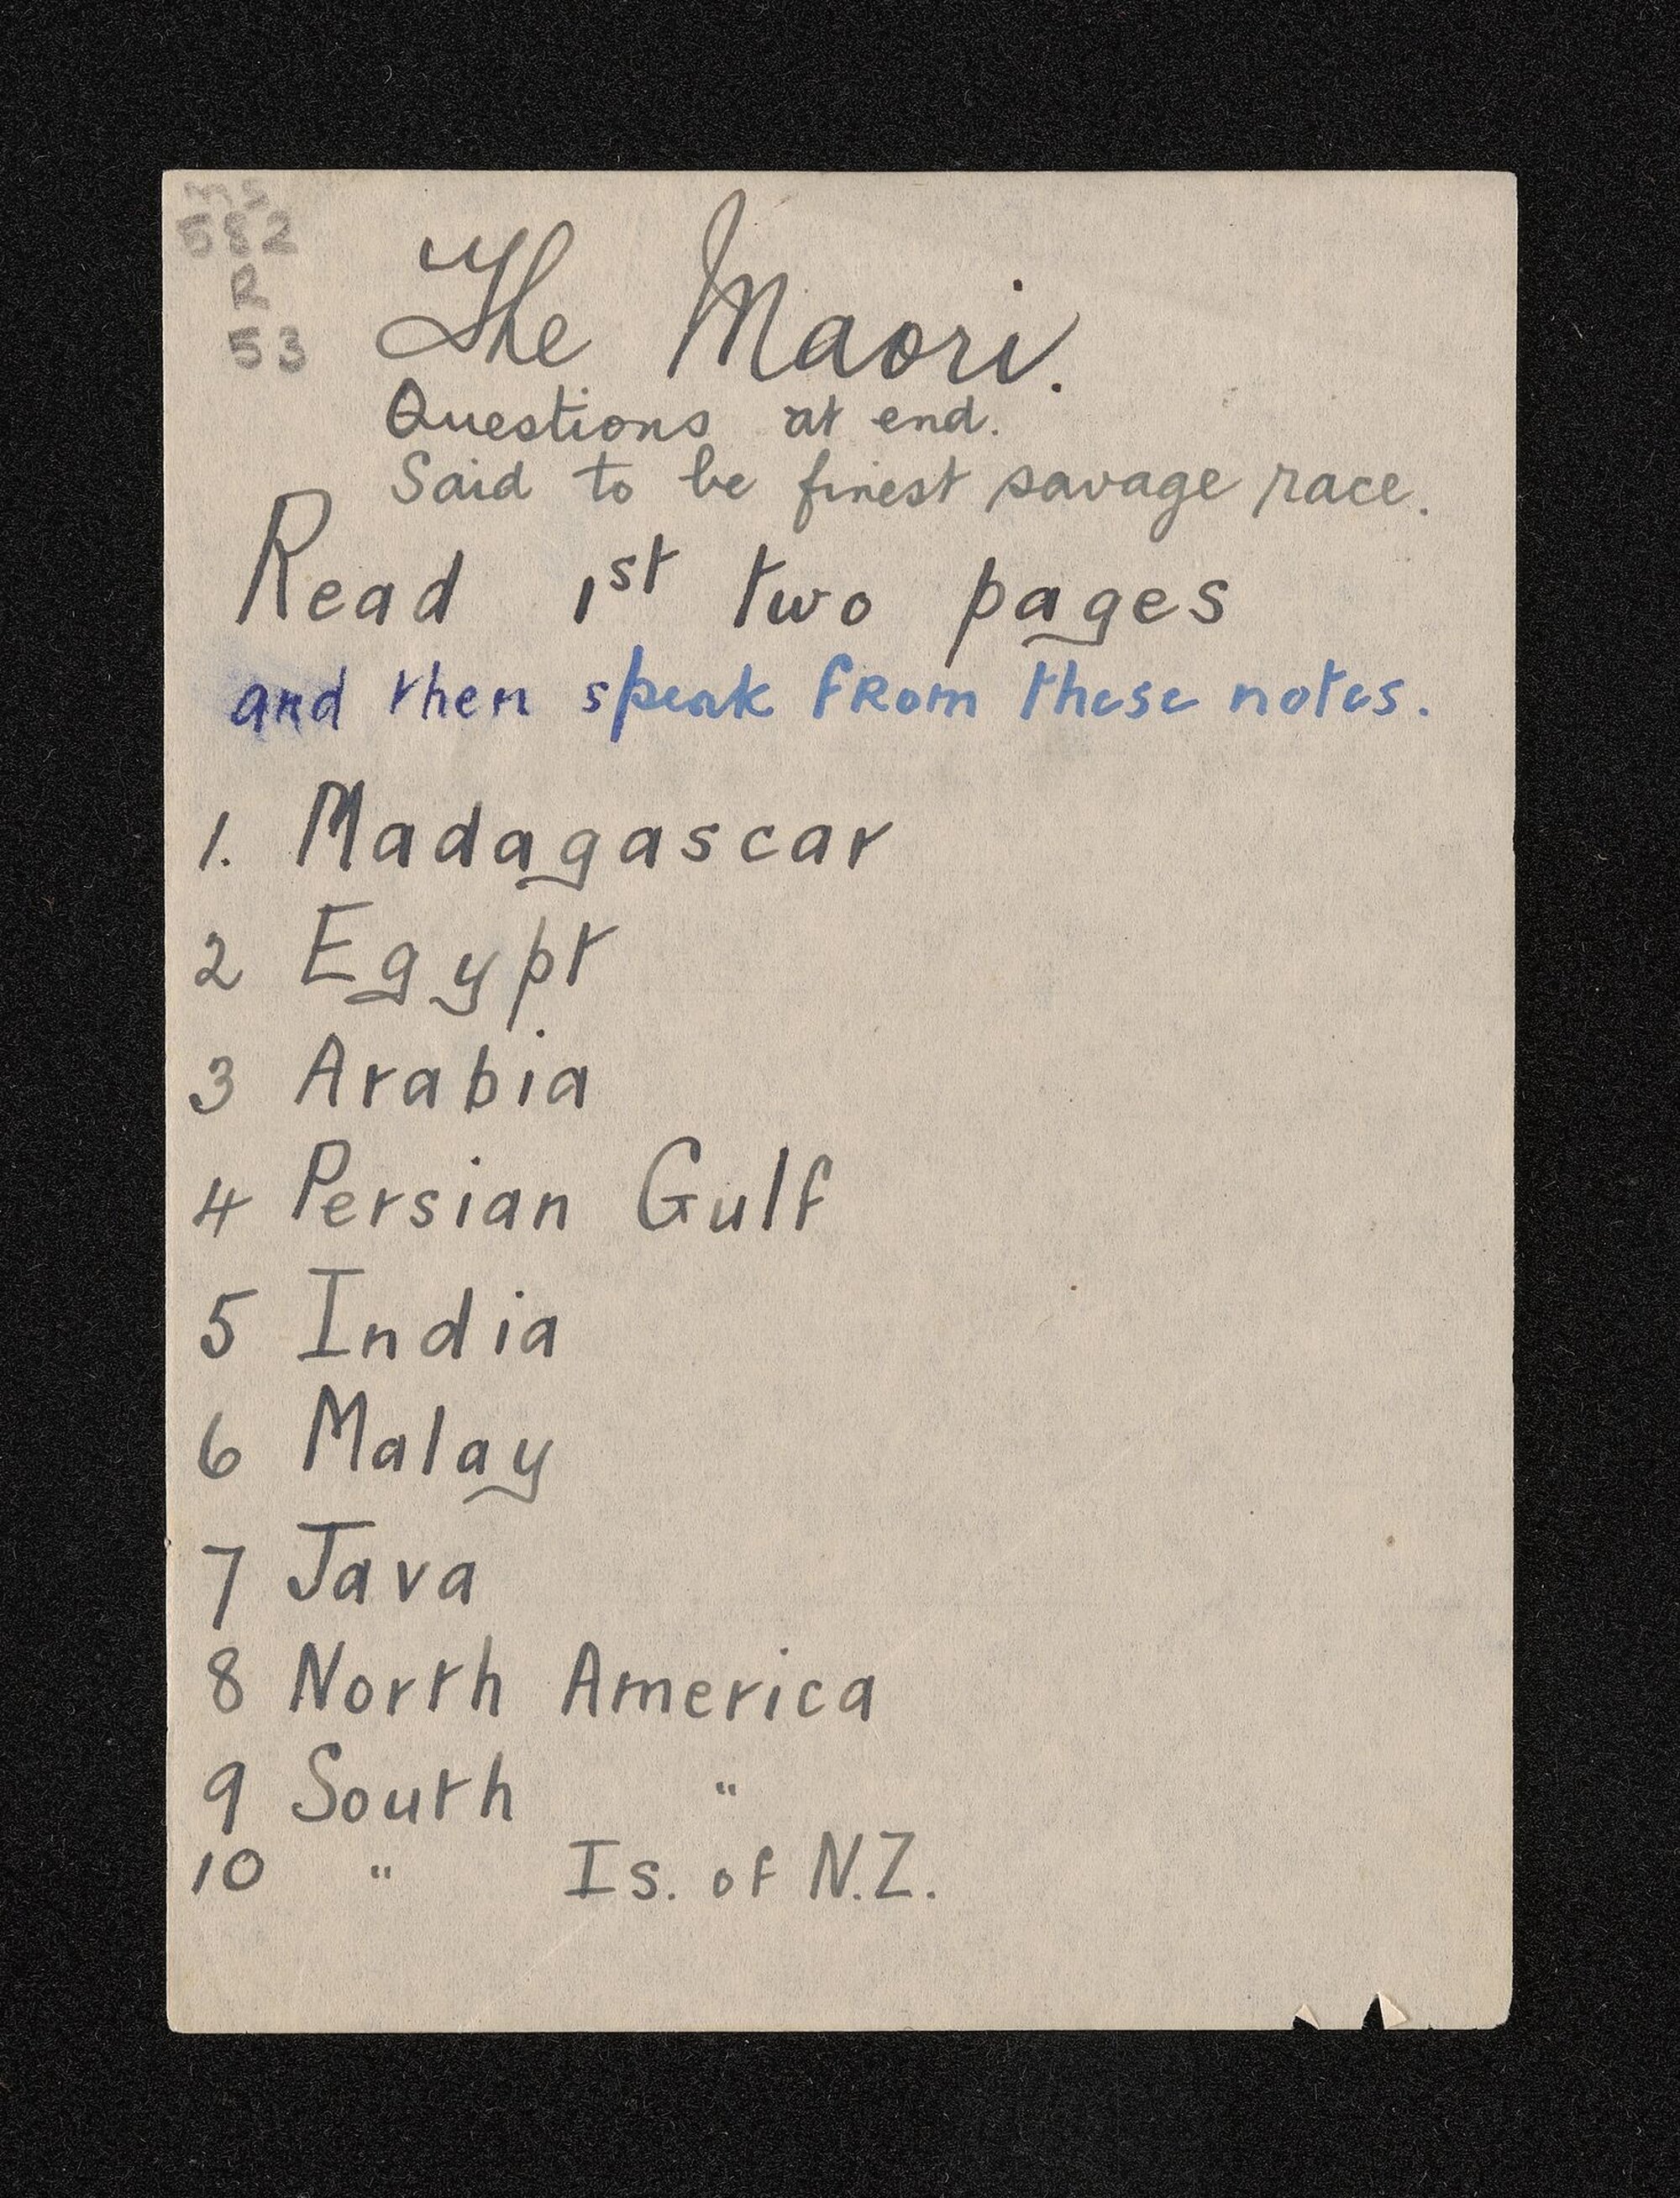 ms
582
R
53
The Maori.
Questions at end.
Said to be finest savage race.
Read 1st two pages
and then speak from these notes.
1. Madagascar
2 Egypt
3 Arabia
4 Persian Gulf
5 India
6 Malay
7 Java
8 North America
9 South "
10 " Is. of N.Z.